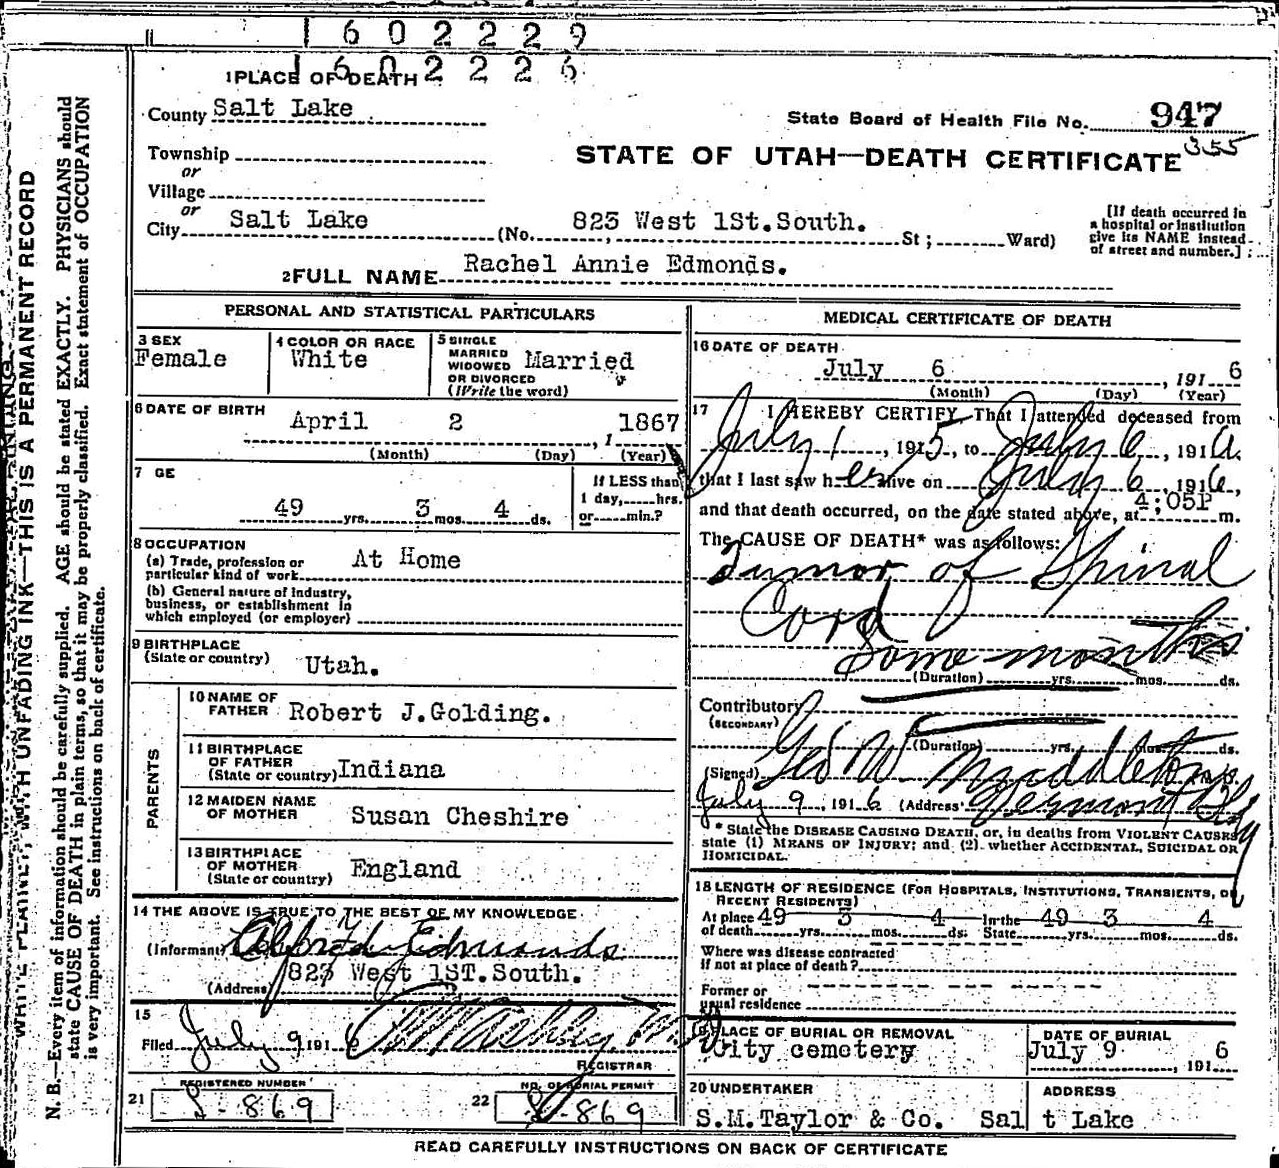 1602229
1602226
1 PLACE OF DEATH
County Salt Lake
State Board of Health File No. 947
355
Township
or
Village
or
STATE OF UTAH—DEATH CERTIFICATE
City Salt Lake (No. 823 West 1St.South. St; Ward)
[If death occurred in
a hospital or institution
give its NAME instead
of street and number.]
2 FULL NAME Rachel Annie Edmonds.
PERSONAL AND STATISTICAL PARTICULARS
3 SEX
Female
4 COLOR OR RACE
White
5 SINGLE
MARRIED
WIDOWED
OR DIVORCED
(Write the word)
Married
6 DATE OF BIRTH
April 2 , 1867
(Month) (Day) (Year)
7 GE
49 yrs. 3 mos. 4 ds.
If LESS than
1 day, hrs.
or min.?
8 OCCUPATION
(a) Trade, profession or
particular kind of work At Home
(b) General nature of industry,
business, or establishment in
which employed (or employer)
9 BIRTHPLACE
(State or country) Utah.
PARENTS
10 NAME OF
FATHER Robert J.Golding.
11 BIRTHPLACE
OF FATHER
(State or country) Indiana
12 MAIDEN NAME
OF MOTHER Susan Cheshire
13 BIRTHPLACE
OF MOTHER
(State or country) England
14 THE ABOVE IS TRUE TO THE BEST OF MY KNOWLEDGE
(Informant) Alfred Edmunds
(Address) 823 West 1ST.South.
15
Filed July 9 191 6
REGISTRAR
21 REGISTERED NUMBER
S-869
22 NO. OF BURIAL PERMIT
S-869
MEDICAL CERTIFICATE OF DEATH
16 DATE OF DEATH
July 6 , 191 6
(Month) (Day) (Year)
17 I HEREBY CERTIFY, That I attended deceased from
July 1, 1915, to July 6, 1916.
that I last saw her alive on July 6, 1916,
and that death occurred, on the date stated above, at 4;05P m.
The CAUSE OF DEATH* was as follows:
Tumor of Spinal
Cord
Some months
(Duration) yrs. mos. ds.
Contributory
(SECONDARY)
(Duration) yrs. mos. ds.
(Signed) Geo W. Middleton
July 9, 1916 (Address) Vermont Bldg
* State the DISEASE CAUSING DEATH, or, in deaths from VIOLENT CAUSES
state (1) MEANS OF INJURY; and (2) whether ACCIDENTAL, SUICIDAL OR
HOMICIDAL.
18 LENGTH OF RESIDENCE (FOR HOSPITALS, INSTITUTIONS, TRANSIENTS, OR
RECENT RESIDENTS)
At place 49 3 4 In the 49 3 4
of death yrs. mos. ds. State yrs. mos. ds.
Where was disease contracted
if not at place of death?
Former or
usual residence
19 PLACE OF BURIAL OR REMOVAL
City cemetery
DATE OF BURIAL
July 9 , 191 6
20 UNDERTAKER
S.M.Taylor & Co.
ADDRESS
Salt Lake
READ CAREFULLY INSTRUCTIONS ON BACK OF CERTIFICATE
WRITE PLAINLY, WITH UNFADING INK—THIS IS A PERMANENT RECORD
N. B.—Every item of information should be carefully supplied. AGE should be stated EXACTLY. PHYSICIANS should
state CAUSE OF DEATH in plain terms, so that it may be properly classified. Exact statement of OCCUPATION
is very important. See instructions on back of certificate.